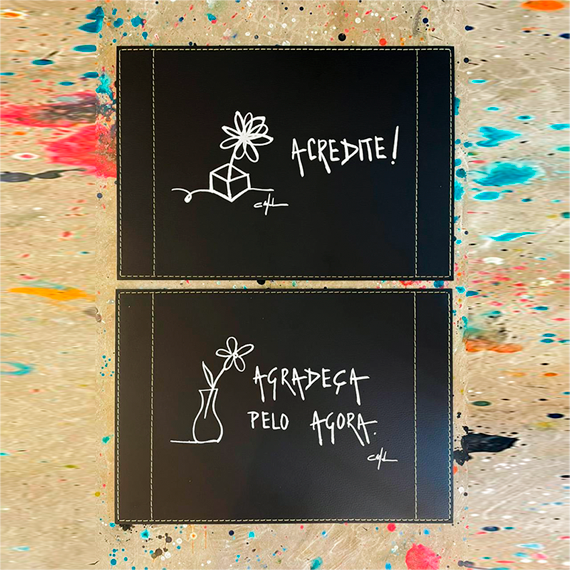 ACREDITE!
AGRADEÇA
PELO AGORA.